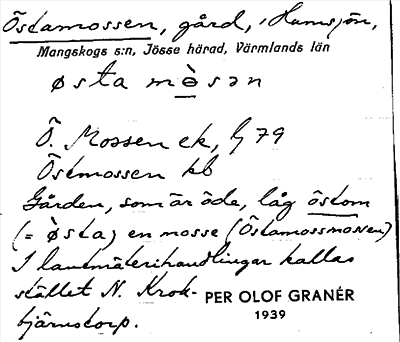 Östamossen, gård, i Hamsjön,
Mangskogs s:n, Jösse härad, Värmlands län
østa mòsən
Ö. Mossen ek, G 79
Östmossen kb
Gården, som är öde, låg östom
(= østa) en mosse (Östamossmossen)
I lantmäterihandlingar kallas
stället N. Krok-
tjärnstorp.
PER OLOF GRANÉR
1939